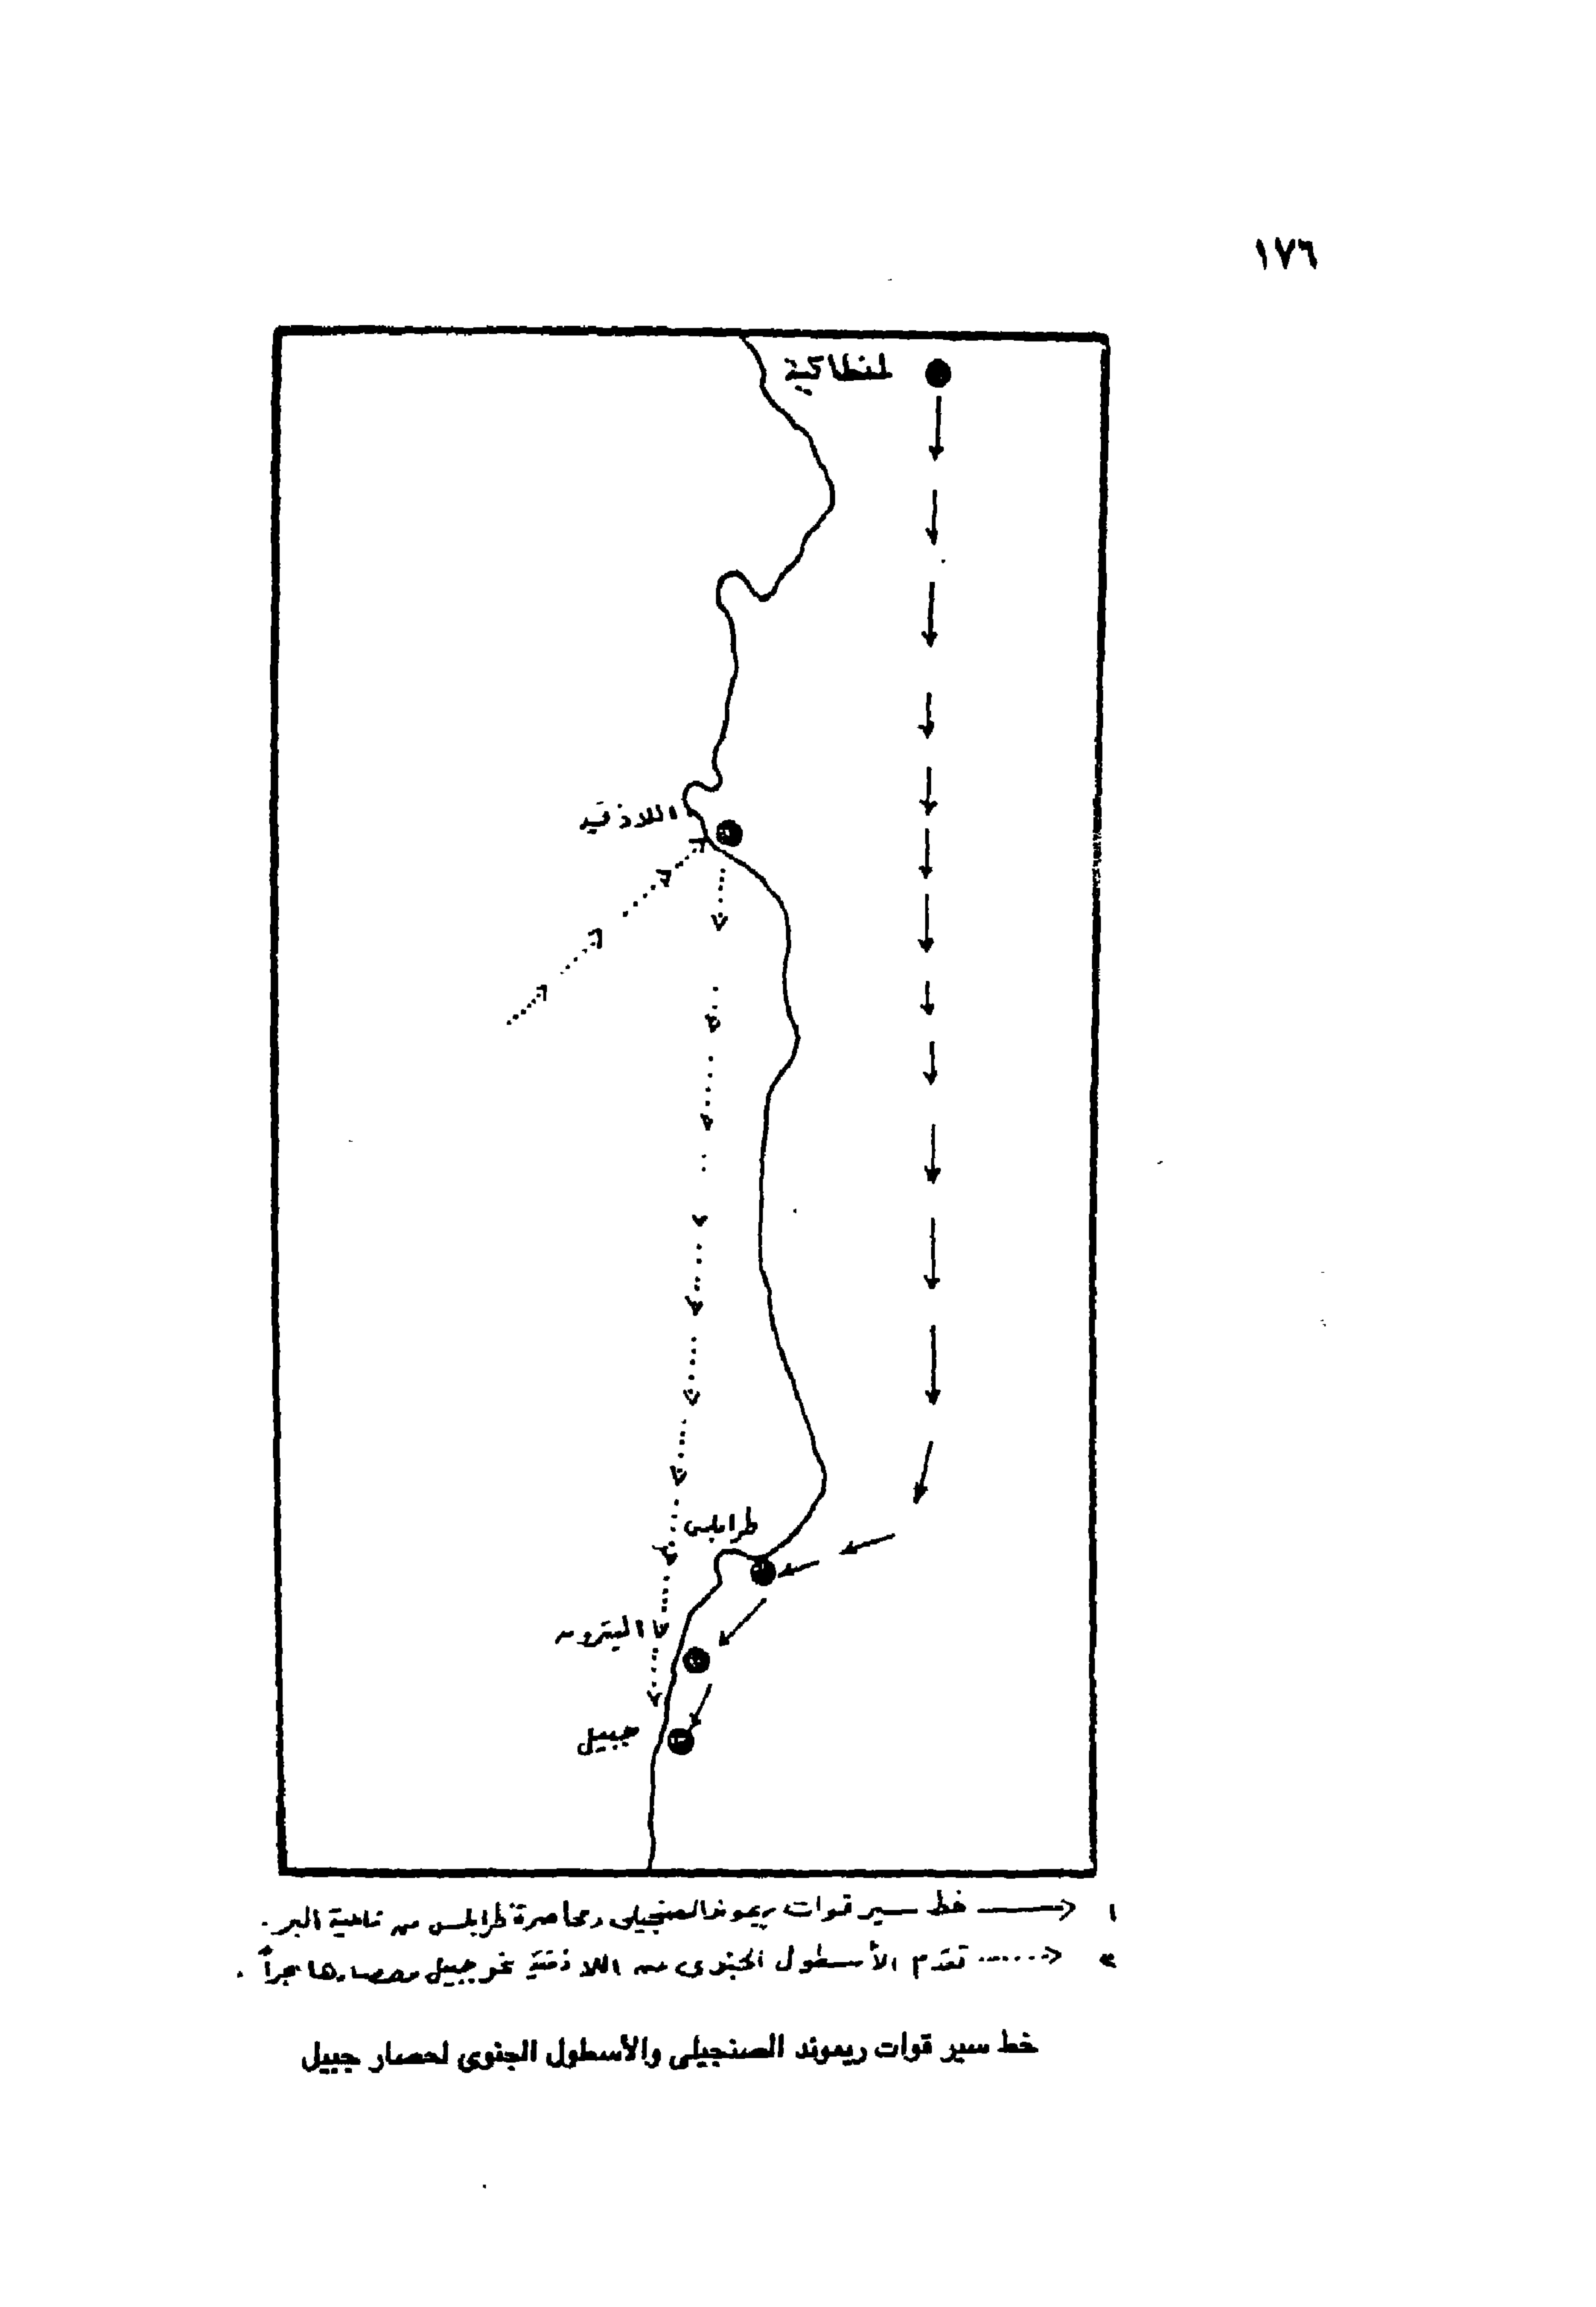 ١٧٦
انطاكية
اللاذقية
طرابلس
البترون
جبيل
١ خط سير قوات ريموند الصنجيلى ومحاصرة طرابلس من ناحية البر .
٢ تقدم الأسطول الجنوى من اللاذقية نحو جبيل وحصارها بحراً .
خط سير قوات ريموند الصنجيلى والأسطول الجنوى لحصار جبيل